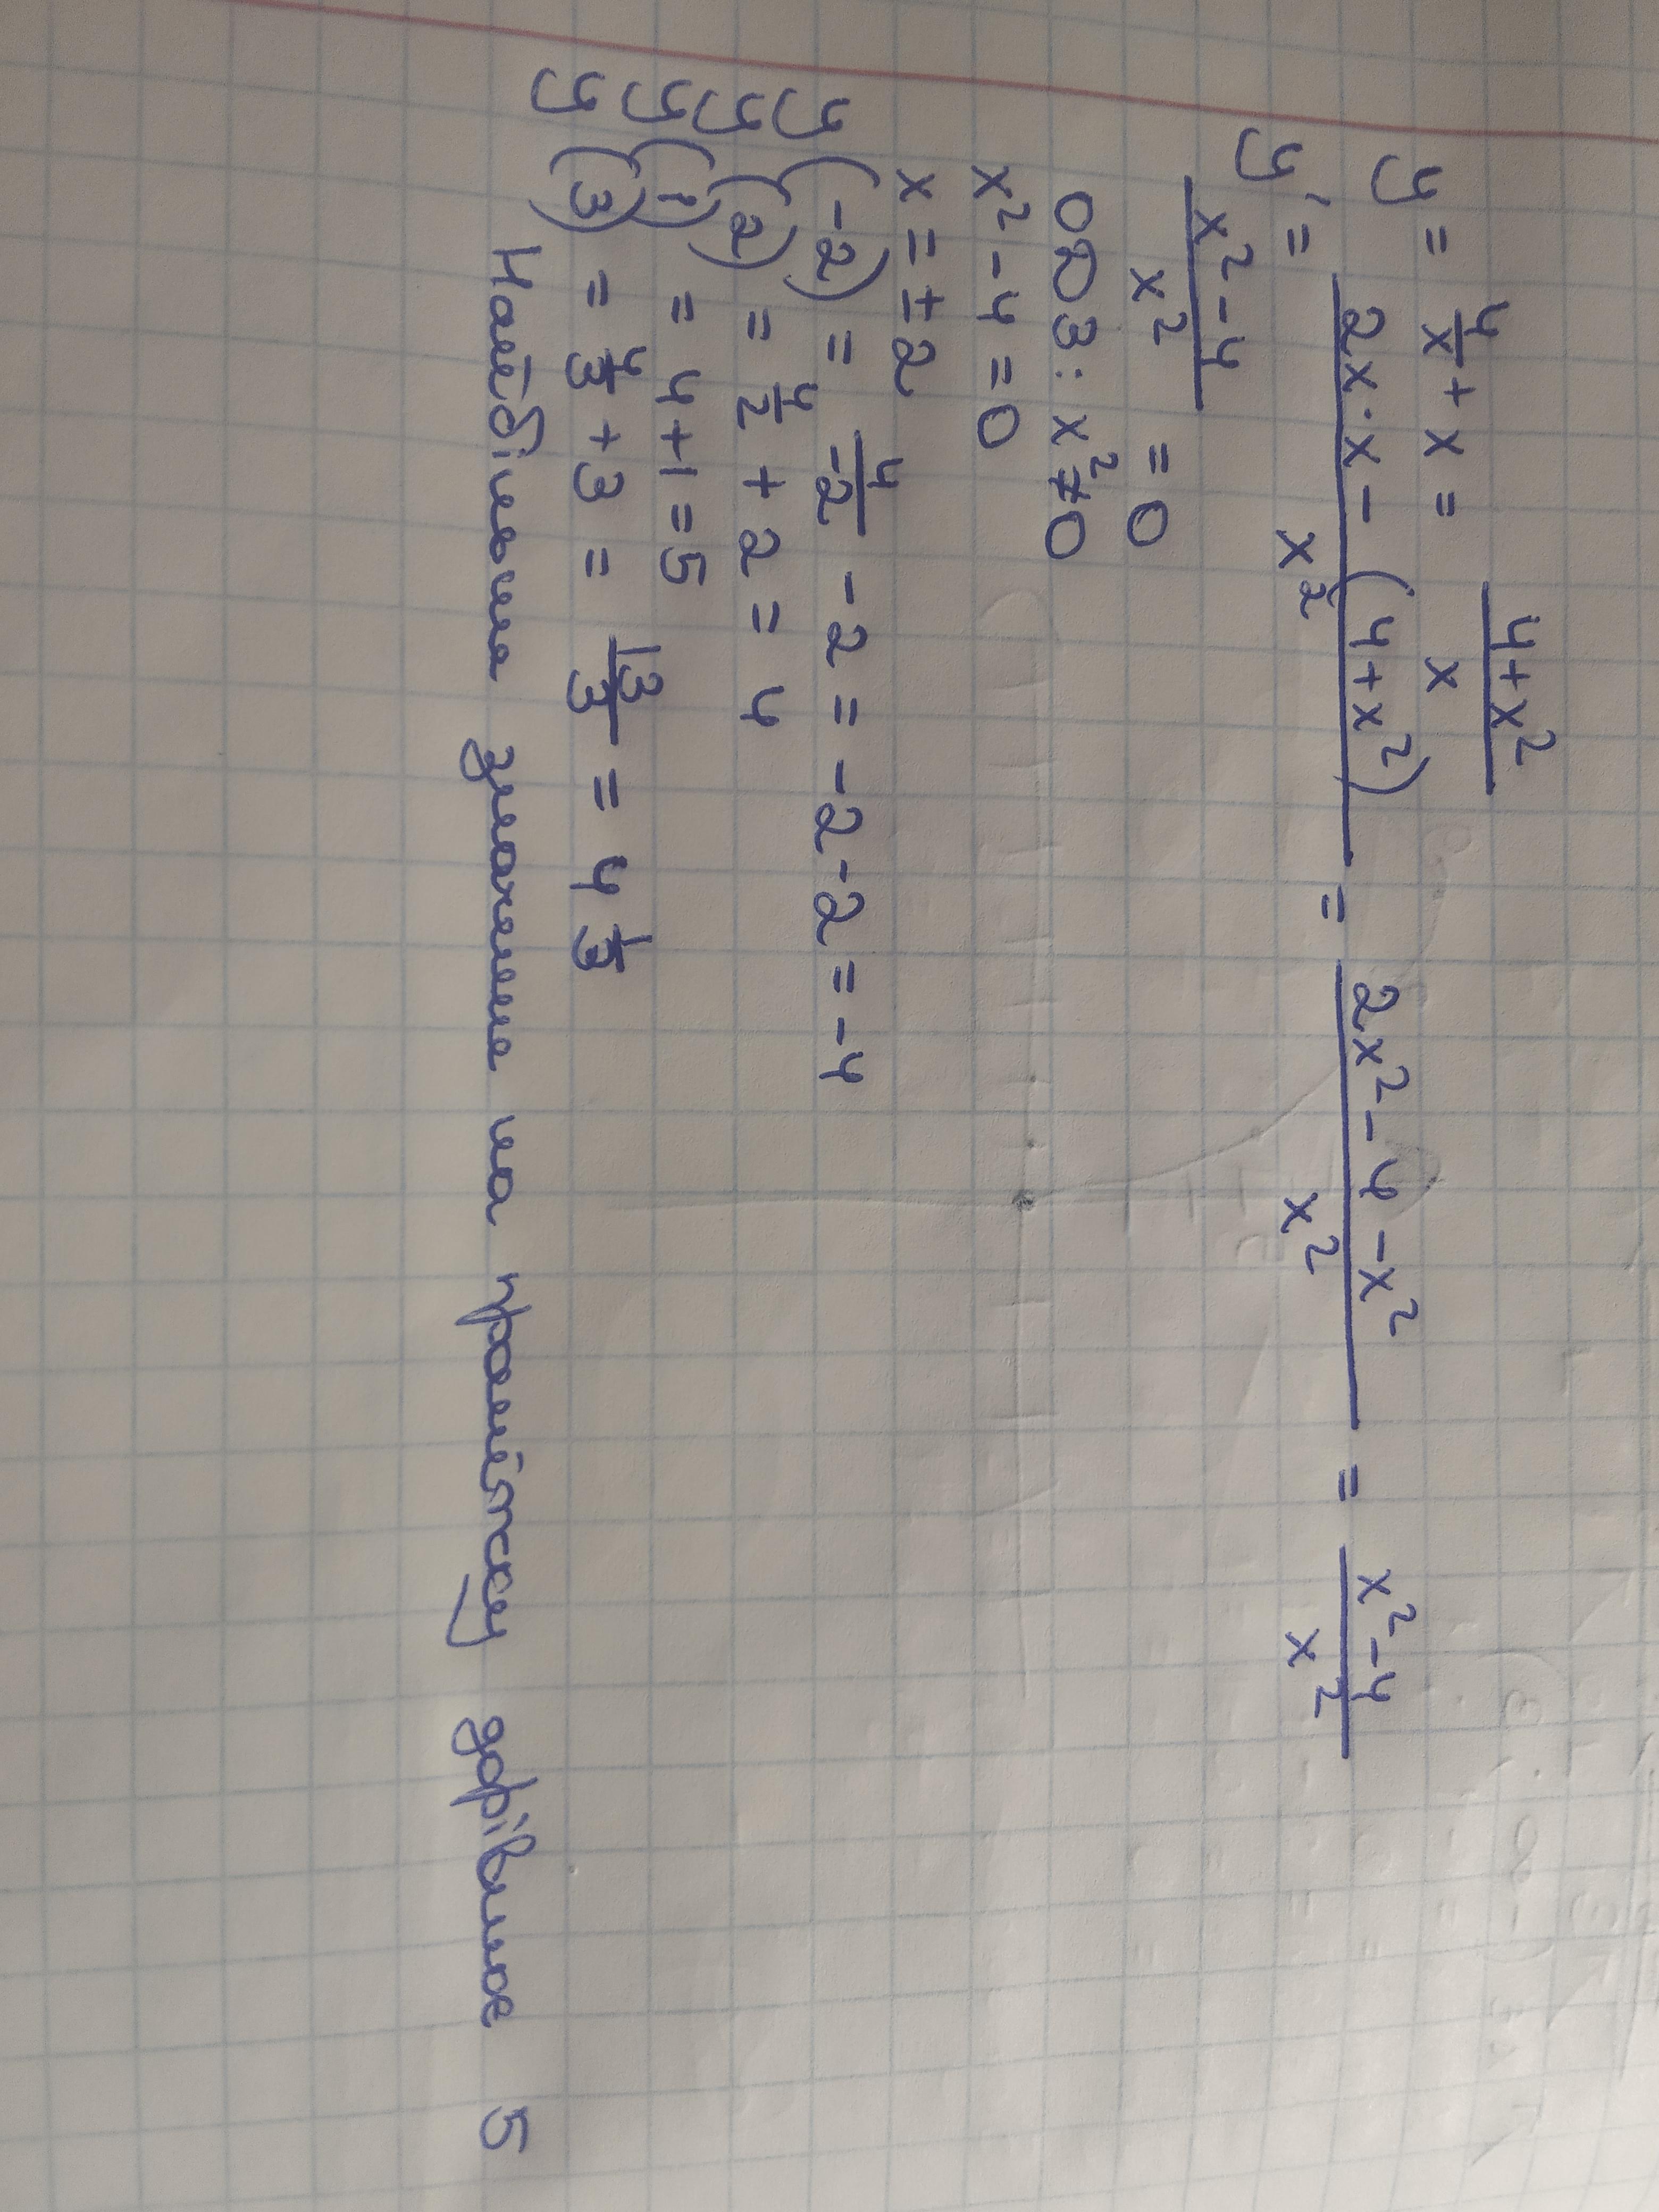 y = 4/x + x = (4+x²)/x
y' = (2x·x - (4+x²))/x² = (2x² - 4 - x²)/x² = (x² - 4)/x²
(x² - 4)/x² = 0
ОДЗ: x² ≠ 0
x² - 4 = 0
x = ± 2
y(-2) = 4/-2 - 2 = -2 - 2 = -4
y(2) = 4/2 + 2 = 4
y(1) = 4+1 = 5
y(3) = 4/3 + 3 = 13/3 = 4 1/3
Найбільше значення на проміжку дорівнює 5